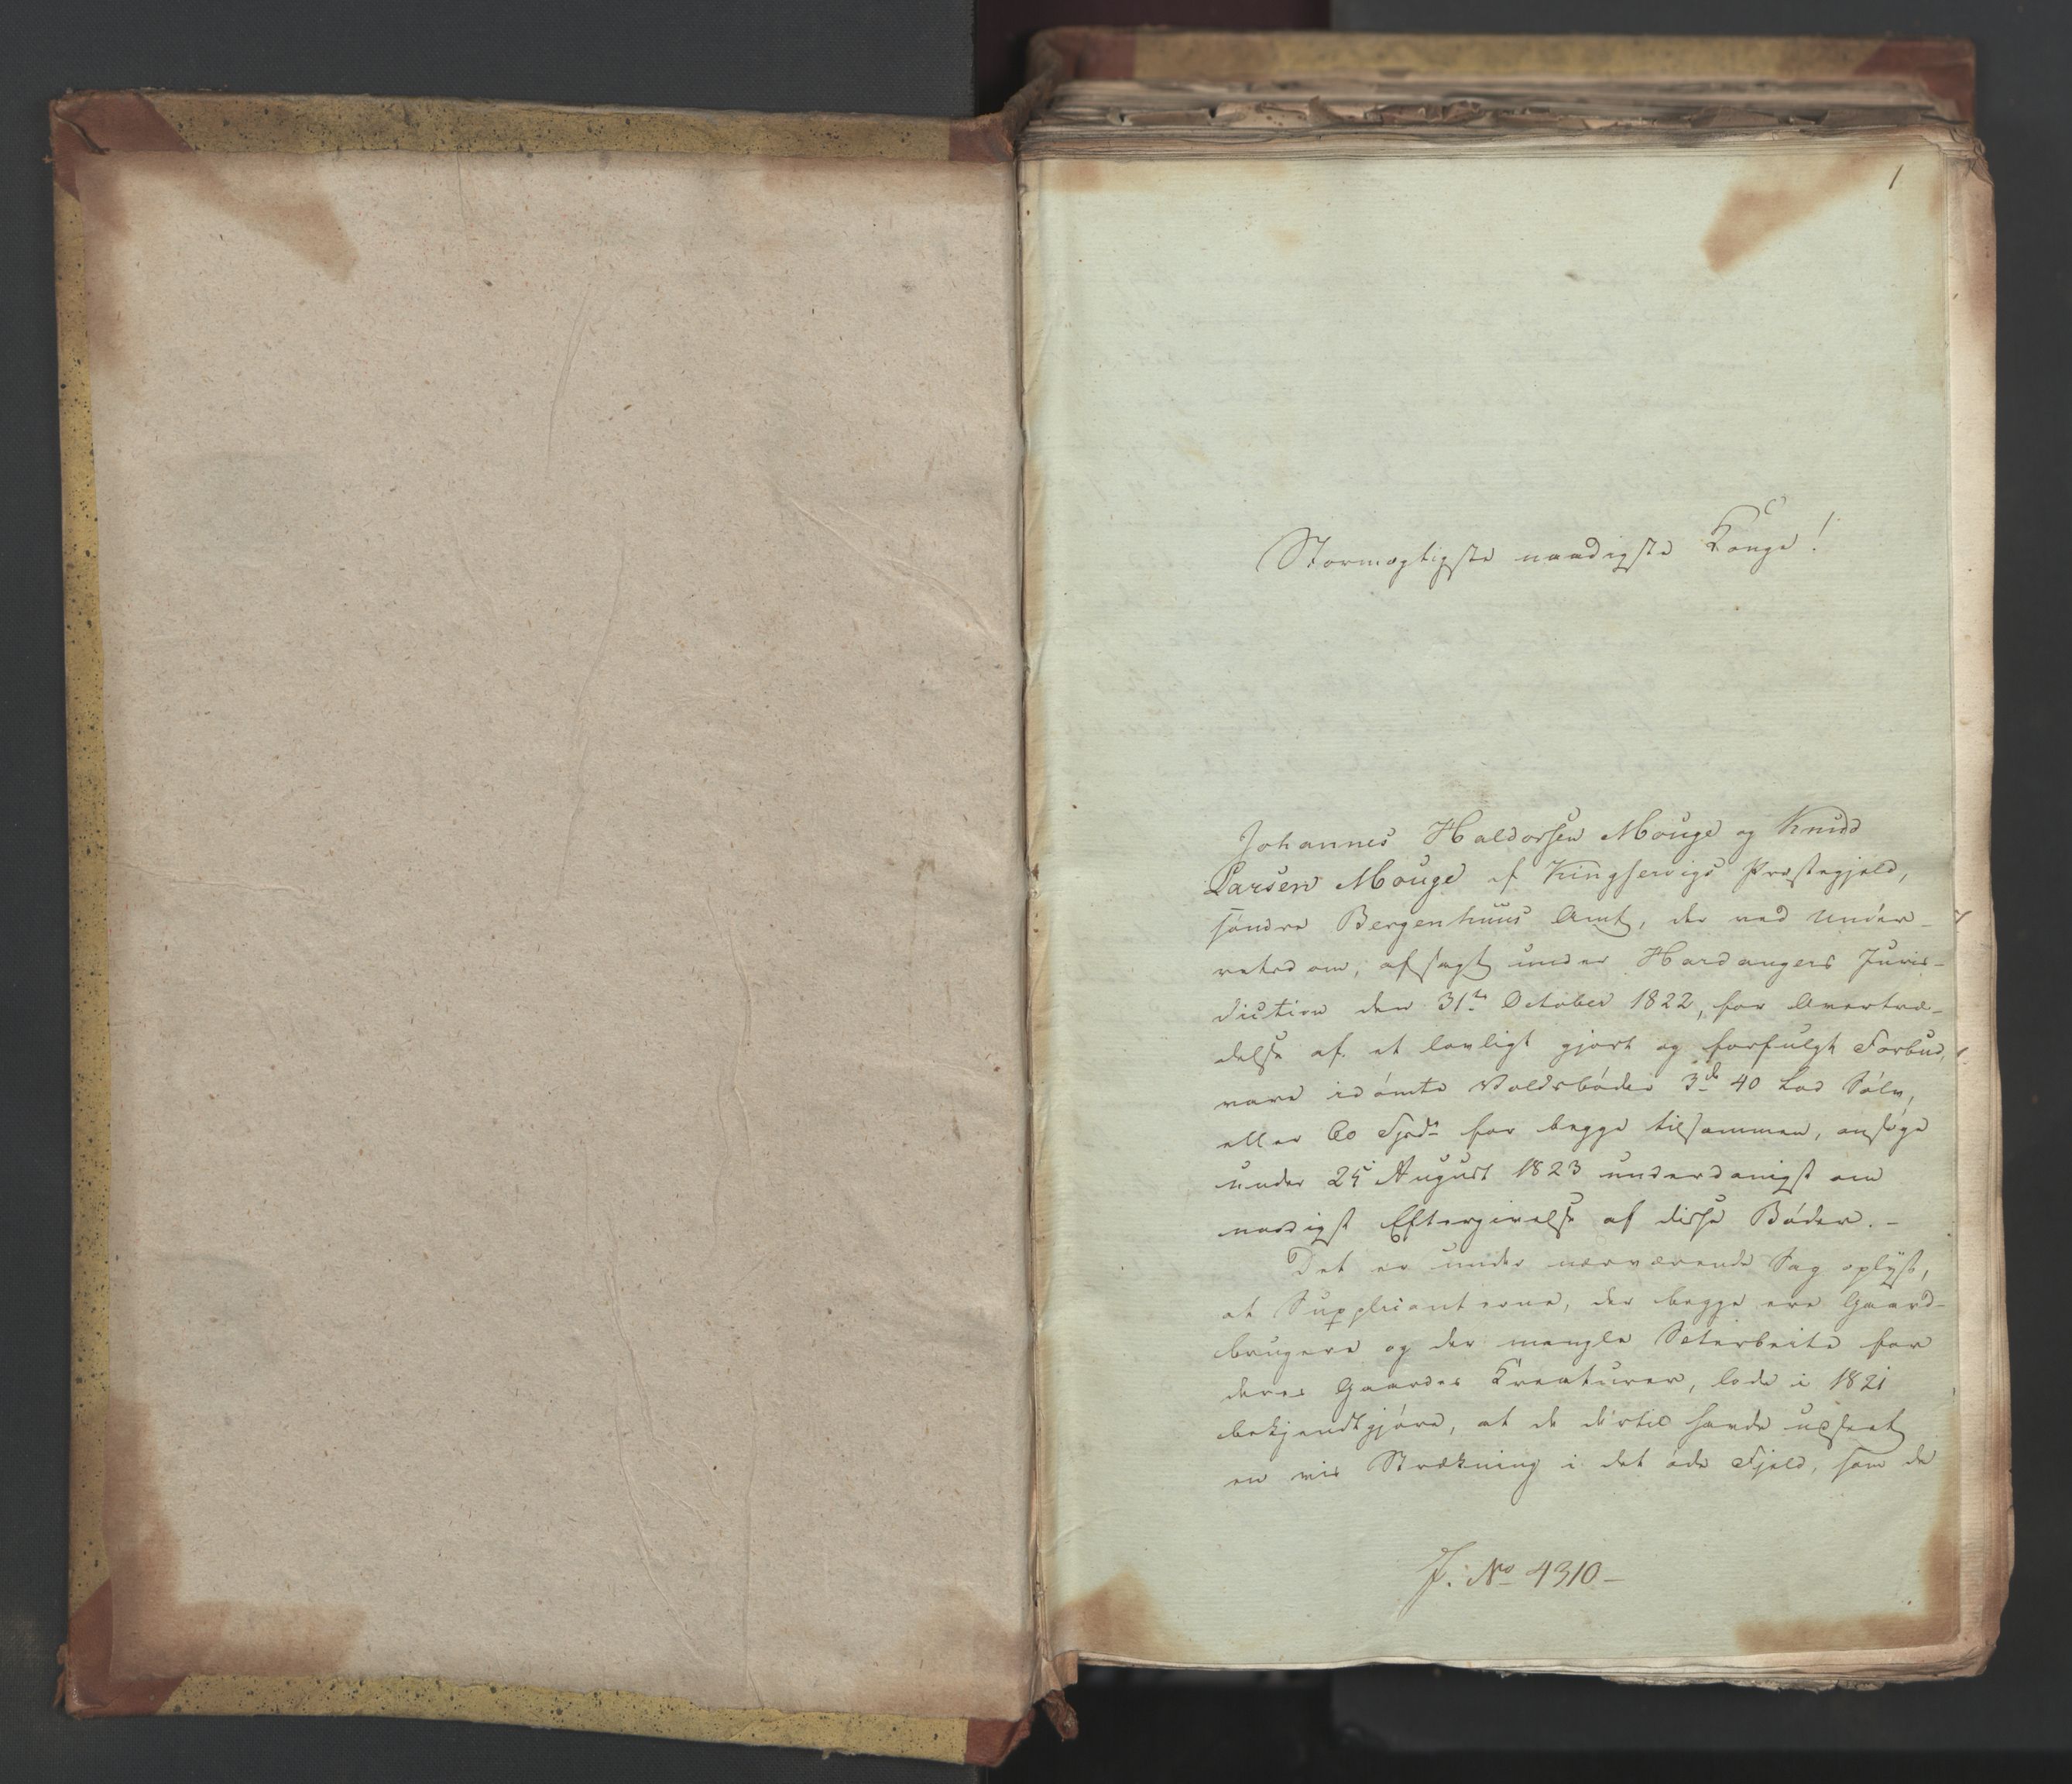 1
Stormægtigste naadigste Konge!
Johannes Haldorsen Mouge og Knud
Larsen Mouge af Kingservigs Præstegjeld,
søndre Bergenhuus Amt, der ved Under-
retsdom, afsagt under Hardangers Juris-
diction den 31te October 1822, for Overtræ-
delse af et lovligt gjort og forfulgt Forbud,
vare idømte Voldsbøder 3de 40 Lod Sølv,
eller 60 Spd for begge tilsammen, ansøge
under 25 August 1823 underdanigst om
naadigst Eftergivelse af disse Bøder. -
Det er under nærværende Sag oplyst,
at Supplicanterne, der begge ere Gaard-
brugere og der mangle Sæterbeite for
deres Gaardes Kreaturer, lode i 1821
bekjendtgjøre, at de dertil havde udseet
en vis Strækning i det øde Fjeld, som de
J. No 4310 -